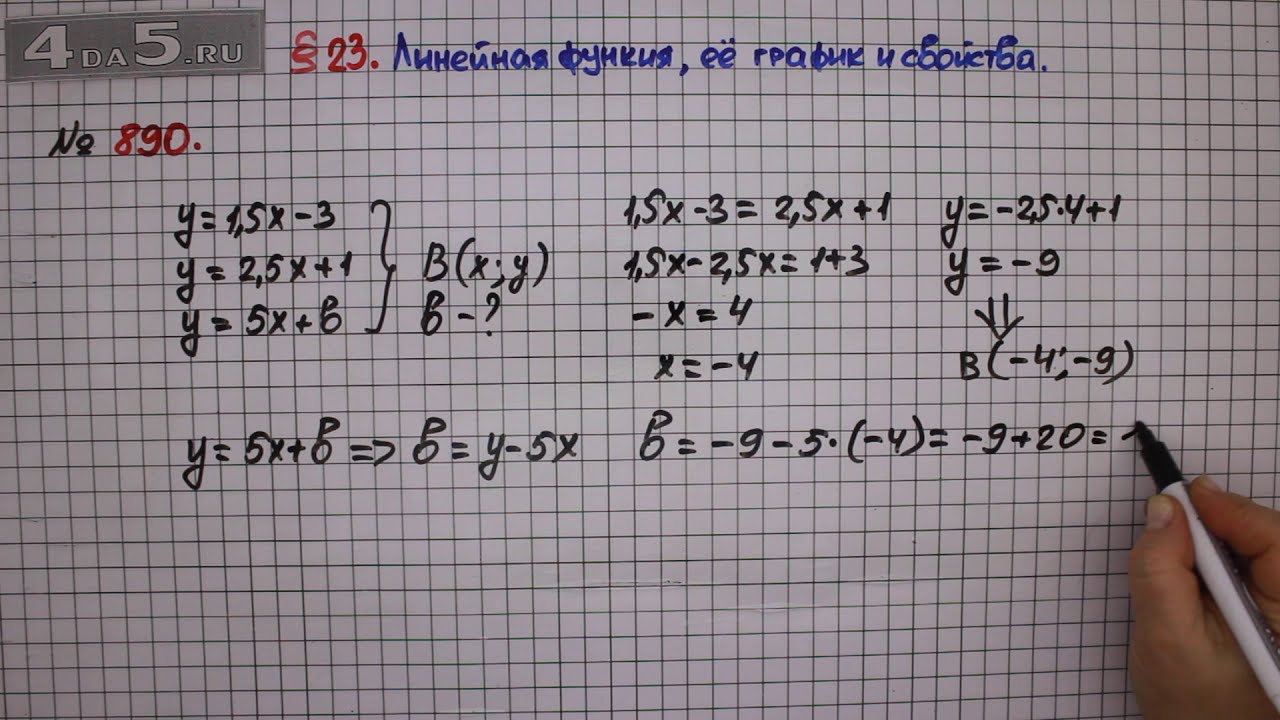 4DA5.RU
§ 23. Линейная функия, её график и свойства.
№ 890.
y = 1,5x - 3
y = 2,5x + 1
y = 5x + в
B(x; y)
в - ?
1,5x - 3 = 2,5x + 1
1,5x - 2,5x = 1 + 3
- x = 4
x = -4
y = -2,5·4+1
y = -9
⇓
B(-4; -9)
y = 5x + в => в = y - 5x
в = -9 - 5·(-4) = -9 + 20 = 1